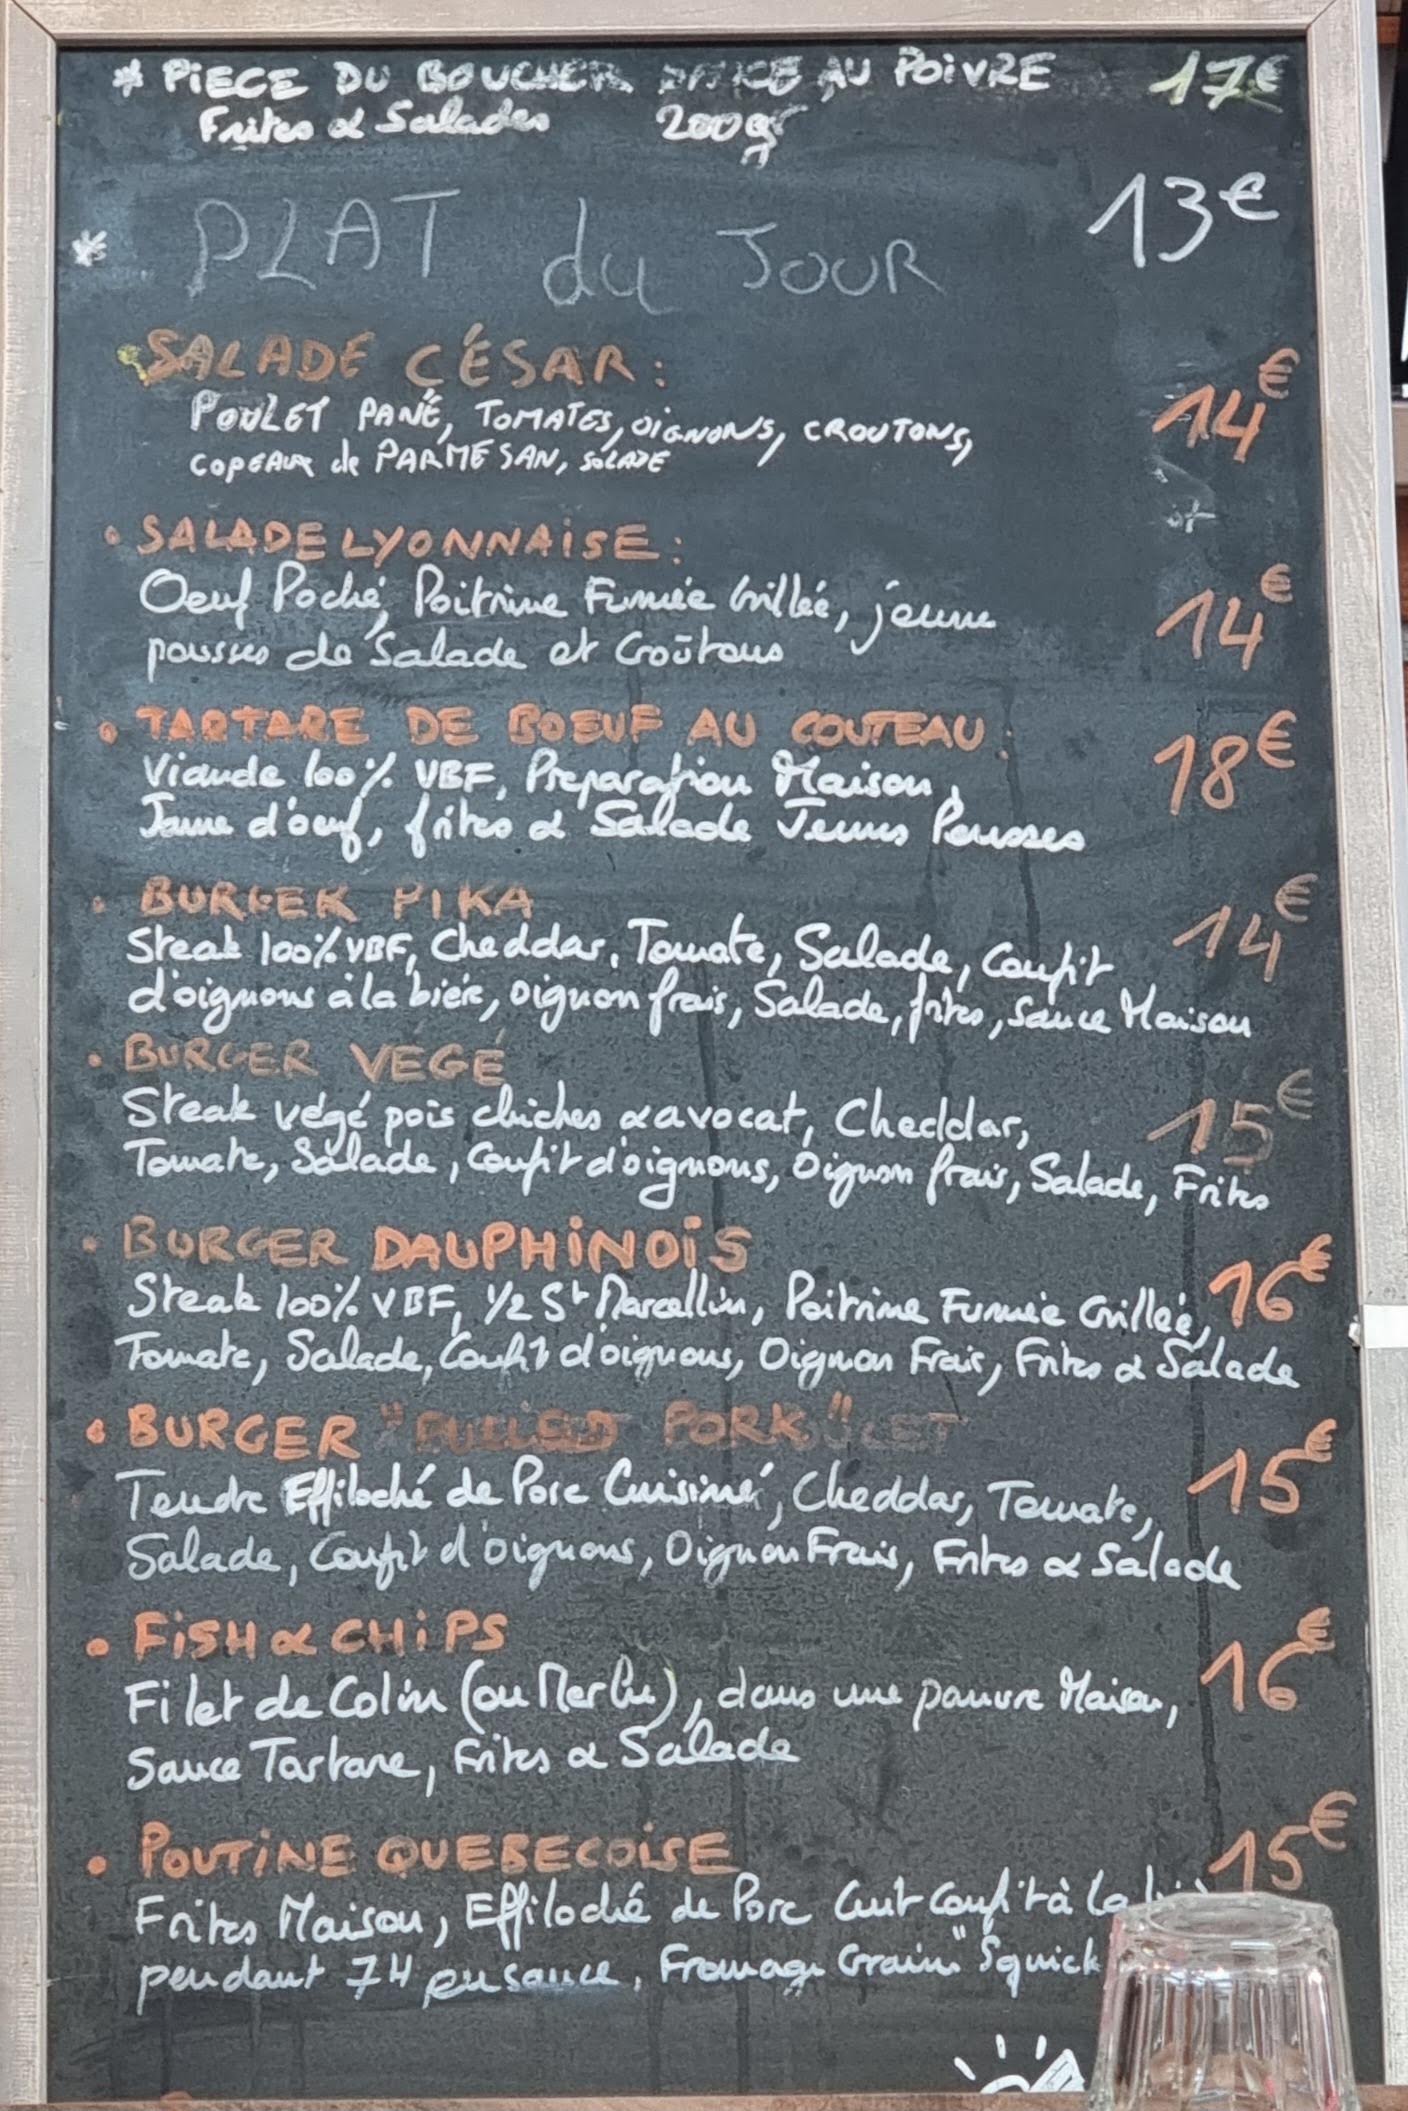 * PIECE DU BOUCHER SAUCE AU POIVRE 17€
Frites & Salades 200gr
* PLAT du JOUR 13€
SALADE CÉSAR :
POULET PANÉ, TOMATES, OIGNONS, CROUTONS, 14€
COPEAUX de PARMESAN, SALADE
• SALADE LYONNAISE :
Oeuf Poché, Poitrine Fumée Grillée, jeune 14€
pousses de Salade et Croûtons
• TARTARE DE BOEUF AU COUTEAU :
Viande 100% VBF, Preparation Maison, 18€
Jaune d'oeuf, frites & Salade Jeunes Pousses
• BURGER PIKA
Steak 100% VBF, Cheddar, Tomate, Salade, Confit 14€
d'oignons à la bière, oignon frais, Salade, frites, Sauce Maison
• BURGER VÉGÉ
Steak végé pois chiches & avocat, Cheddar, 15€
Tomate, Salade, Confit d'oignons, Oignon frais, Salade, Frites
• BURGER DAUPHINOIS
Steak 100% VBF, 1/2 St Marcellin, Poitrine Fumée Grillée, 16€
Tomate, Salade, Confit d'oignons, Oignon Frais, Frites & Salade
• BURGER "PULLED PORK"
Tendre Effiloché de Porc Cuisiné, Cheddar, Tomate, 15€
Salade, Confit d'oignons, Oignon Frais, Frites & Salade
• FISH & CHIPS
Filet de Colin (ou Merlu), dans une panure Maison, 16€
Sauce Tartare, Frites & Salade
• POUTINE QUEBECOISE 15€
Frites Maison, Effiloché de Porc Cuit Confit à la
pendant 7H en sauce, Fromage Grain "Squick